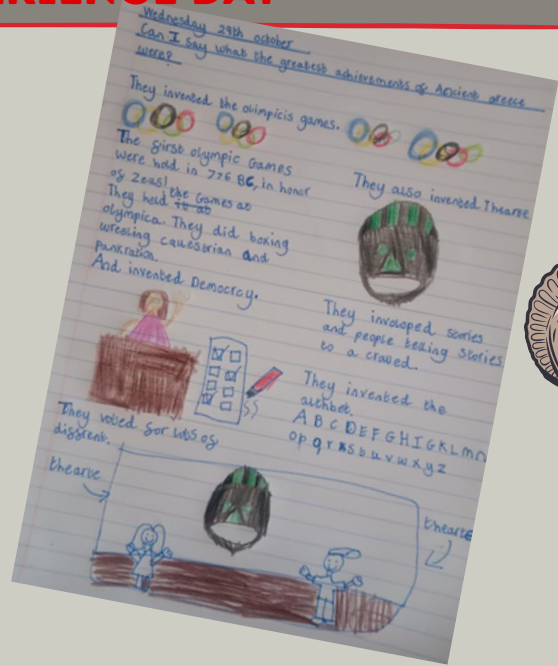 ERIENCE DAY
Wednesday 29th october
Can I say what the greatest achievements of Ancient greece
were?
They invented the olimpicis games.
The first olympic Games
were hold in 776 BC, in honor
of Zeus!
They held the Games at
olympica. They did boxing
wresling equestrian and
Pankration.
And invented Democrcy.
They voted for lots of
diffrent.
They also invented Thearte
They involoped scories
and people telling stories
to a crawed.
They invented the
A B C D E F G H I G K L m n
o p q r s t u v w x y z
thearte
thearte